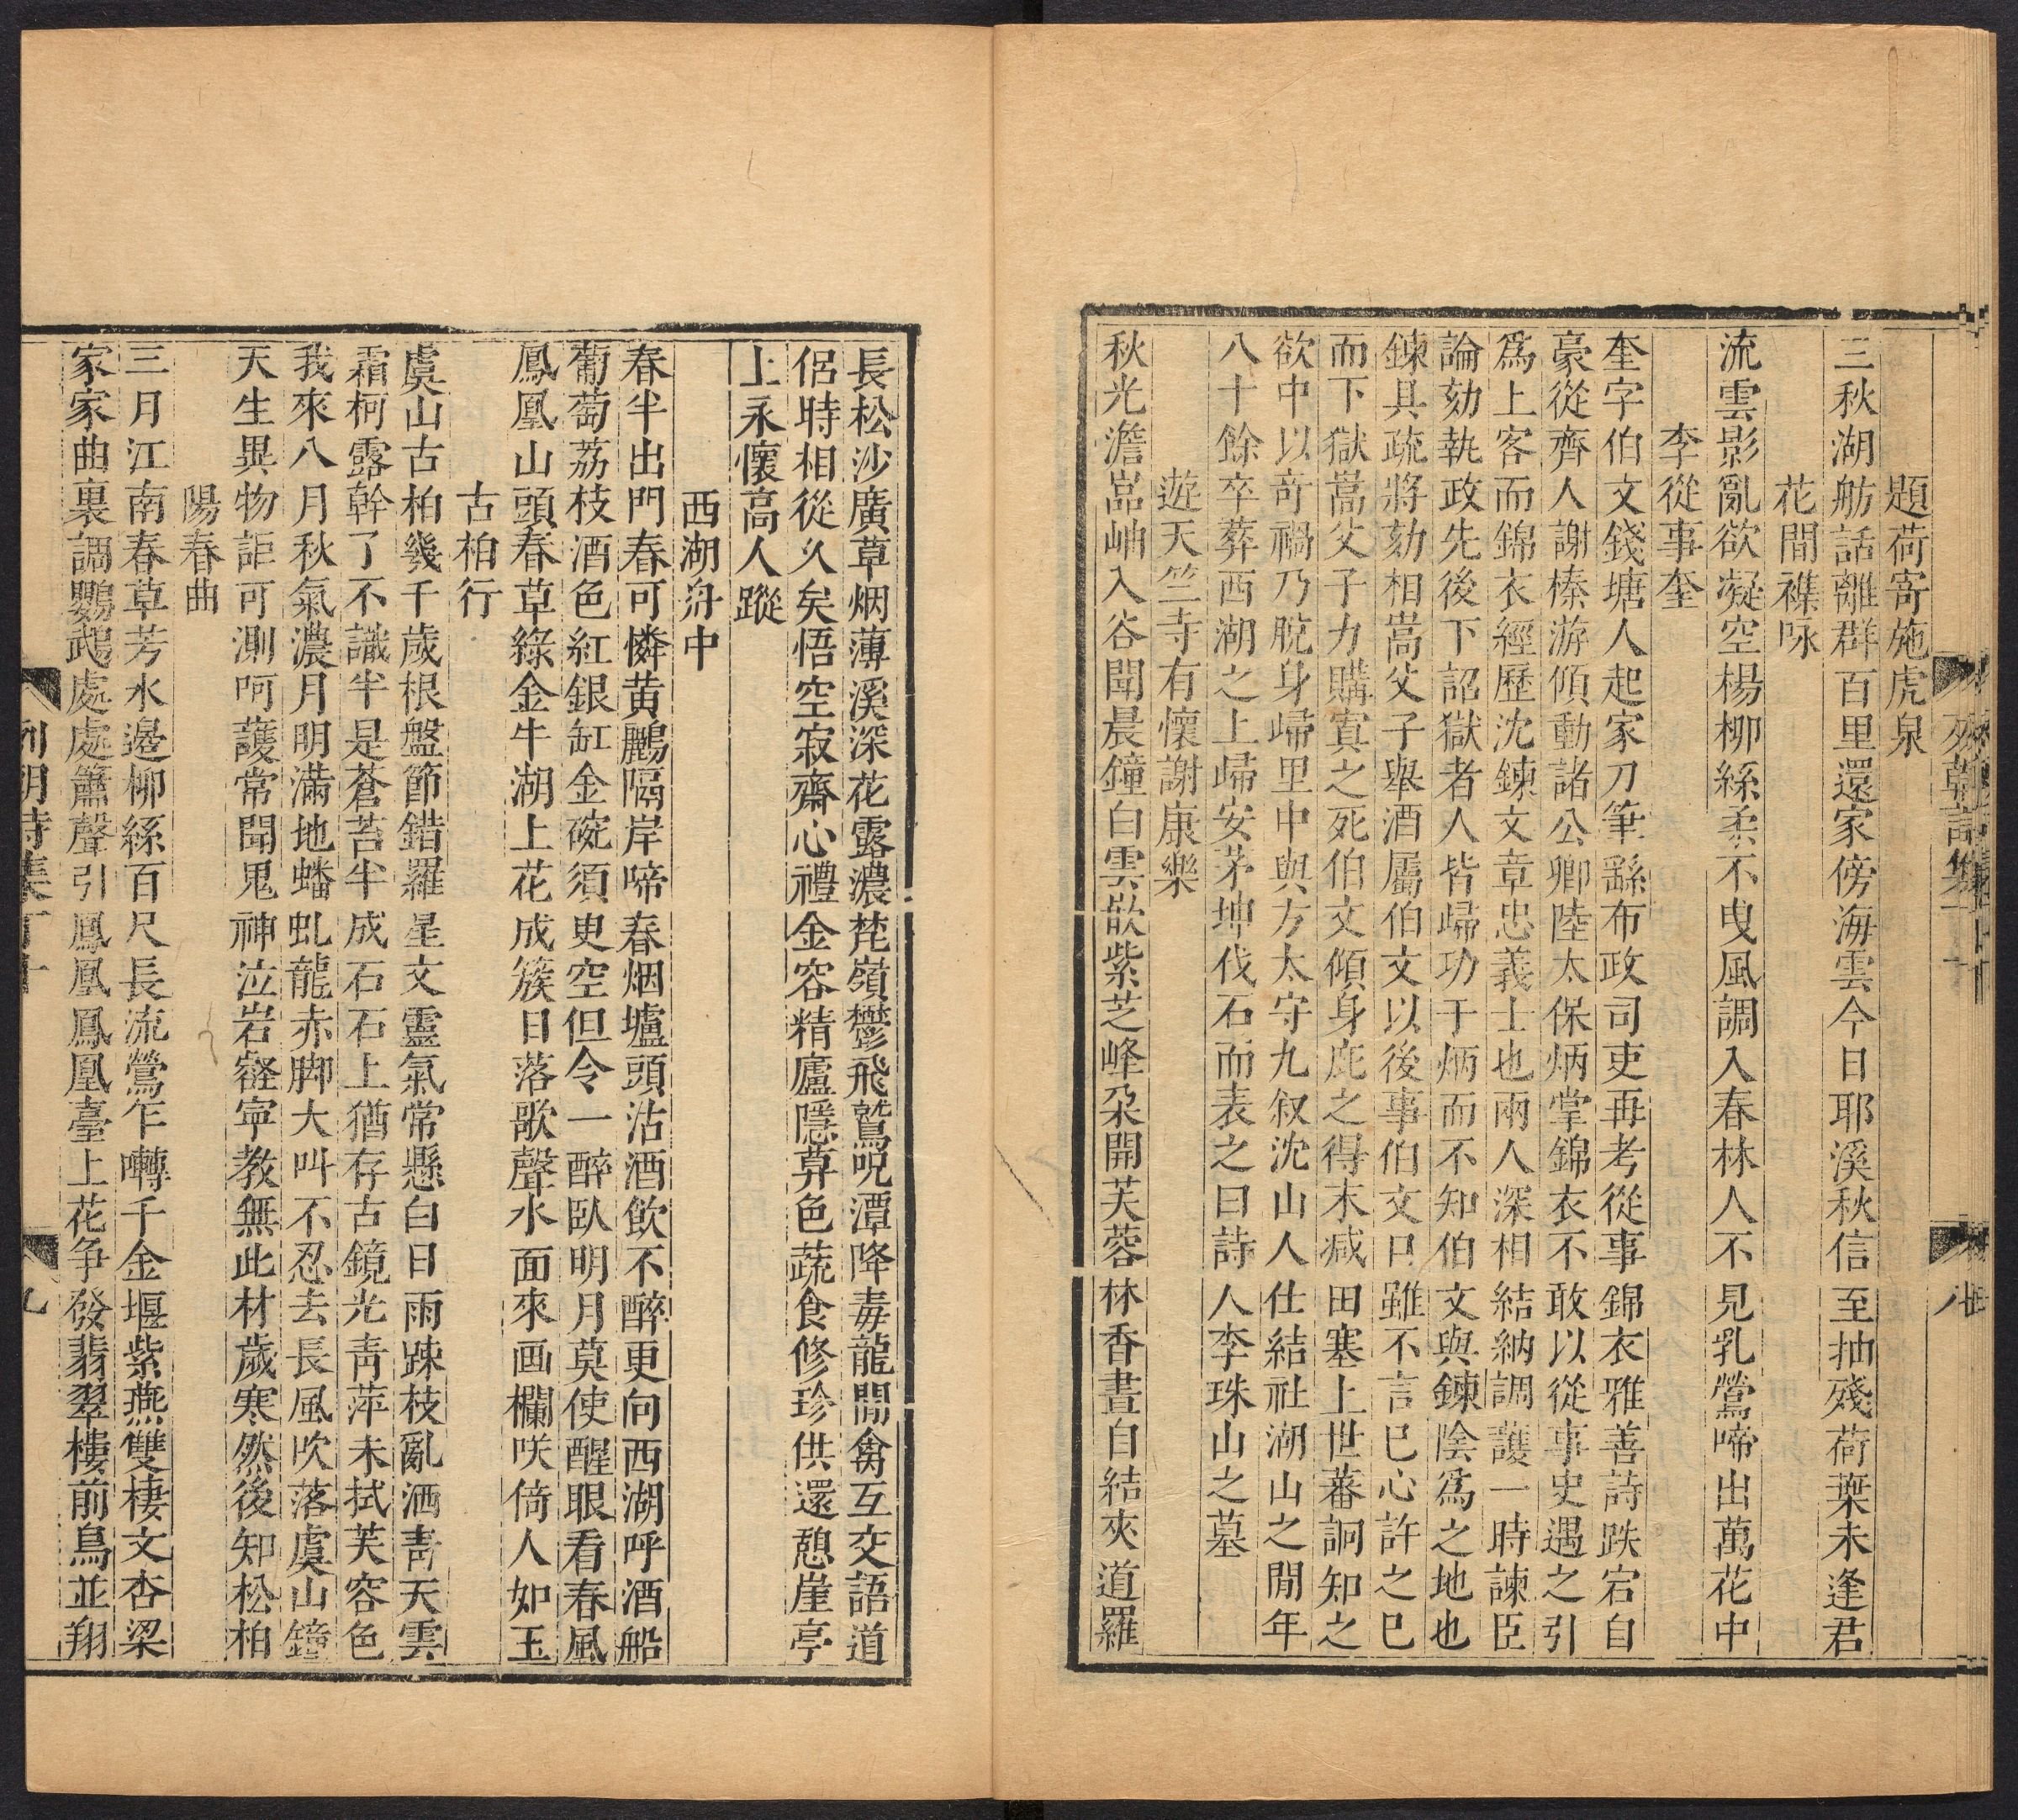 題荷寄施虎泉
三秋湖舫話離群百里還家傍海雲今日耶溪秋信至抽殘荷葉未逢君
花間襍咏
流雲影亂欲凝空楊柳絲柔不曳風調入春林人不見乳鶯啼出萬花中
李從事奎
奎字伯文錢塘人起家刀筆繇布政司吏再考從事錦衣雅善詩跌宕自
豪從齊人謝榛游傾動諸公卿陸太保炳掌錦衣不敢以從事史遇之引
爲上客而錦衣經歷沈鍊文章忠義士也兩人深相結納調護一時諫臣
論劾執政先後下詔獄者人皆歸功于炳而不知伯文與鍊陰爲之地也
鍊具疏將劾相嵩父子舉酒屬伯文以後事伯文口雖不言已心許之已
而下獄嵩父子力購寘之死伯文傾身庇之得末减田塞上世蕃詗知之
欲中以奇禍乃脫身歸里中與方太守九叙沈山人仕結社湖山之閒年
八十餘卒葬西湖之上歸安茅坤伐石而表之曰詩人李珠山之墓
遊天竺寺有懷謝康樂
秋光澹嵓岫入谷聞晨鐘白雲歘紫芝峰朵開芙蓉林香晝自結夾道羅
長松沙廣草烟薄溪深花露濃梵嶺鬱飛鷲呪潭降毒龍閒禽互交語道
侶時相從久矣悟空寂齋心禮金容精廬隱莽色蔬食修珍供還憩崖亭
上永懷高人蹤
西湖舟中
春半出門春可憐黄鸝隔岸啼春烟壚頭沽酒飲不醉更向西湖呼酒船
葡萄荔枝酒色紅銀缸金碗須臾空但令一醉臥明月莫使醒眼看春風
鳳凰山頭春草綠金牛湖上花成簇日落歌聲水面來画欄咲倚人如玉
古柏行
虞山古柏幾千歲根盤節錯羅星文靈氣常懸白日雨踈枝亂洒青天雲
霜柯露幹了不識半是蒼苔半成石石上猶存古鏡光靑萍未拭芙容色
我來八月秋氣濃月明滿地蟠虬龍赤脚大叫不忍去長風吹落虞山鐘
天生異物詎可測呵護常聞鬼神泣岩壑寧教無此材歲寒然後知松柏
陽春曲
三月江南春草芳水邊柳絲百尺長流鶯乍囀千金堰紫燕雙棲文杏梁
家家曲裏調鸚鵡處處簫聲引鳳凰鳳凰臺上花争發翡翠樓前鳥並翔
列朝詩集丁集十
九